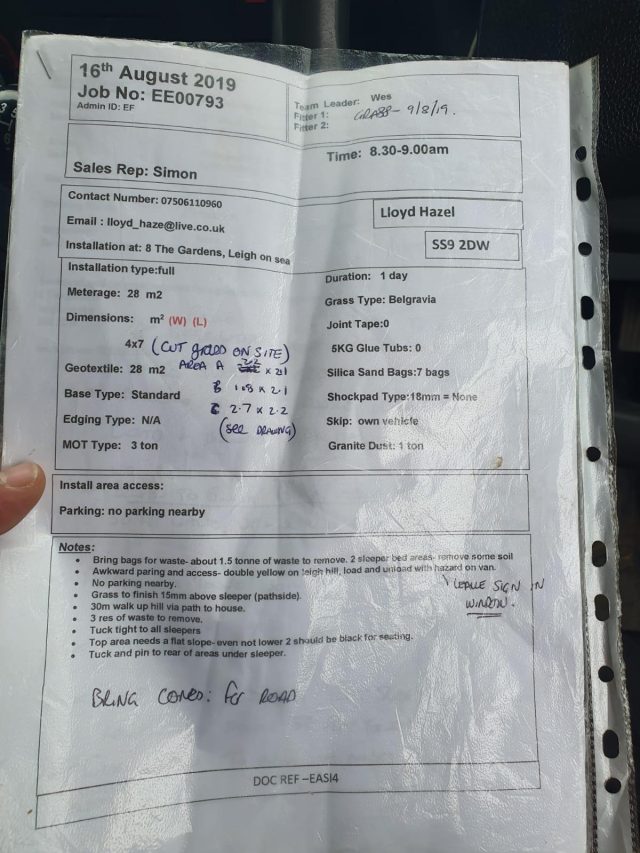 16th August 2019
Job No: EE00793
Admin ID: EF
Team Leader: Wes
Fitter 1: GRASS - 9/8/19.
Fitter 2:
Sales Rep: Simon
Time: 8.30-9.00am
Contact Number: 07506110960
Email : lloyd_haze@live.co.uk
Installation at: 8 The Gardens, Leigh on sea
Lloyd Hazel
SS9 2DW
Installation type:full
Meterage: 28 m2
Dimensions: m² (W) (L)
4x7 (CUT ON SITE)
Geotextile: 28 m2 AREA A 2.2 x 2.1
Base Type: Standard B 1.8 x 2.1
C 2.7 x 2.2
Edging Type: N/A (SEE DRAWING)
MOT Type: 3 ton
Duration: 1 day
Grass Type: Belgravia
Joint Tape:0
5KG Glue Tubs: 0
Silica Sand Bags:7 bags
Shockpad Type:18mm = None
Skip: own vehicle
Granite Dust: 1 ton
Install area access:
Parking: no parking nearby
Notes:
Bring bags for waste- about 1.5 tonne of waste to remove. 2 sleeper bed areas- remove some soil
Awkward paring and access- double yellow on leigh hill, load and unload with hazard on van.
No parking nearby.
LEAVE SIGN IN WINDOW.
Grass to finish 15mm above sleeper (pathside).
30m walk up hill via path to house.
3 res of waste to remove.
Tuck tight to all sleepers
Top area needs a flat slope- even not lower 2 should be black for seating.
Tuck and pin to rear of areas under sleeper.
BRING CONES: for ROAD
DOC REF –EASI4